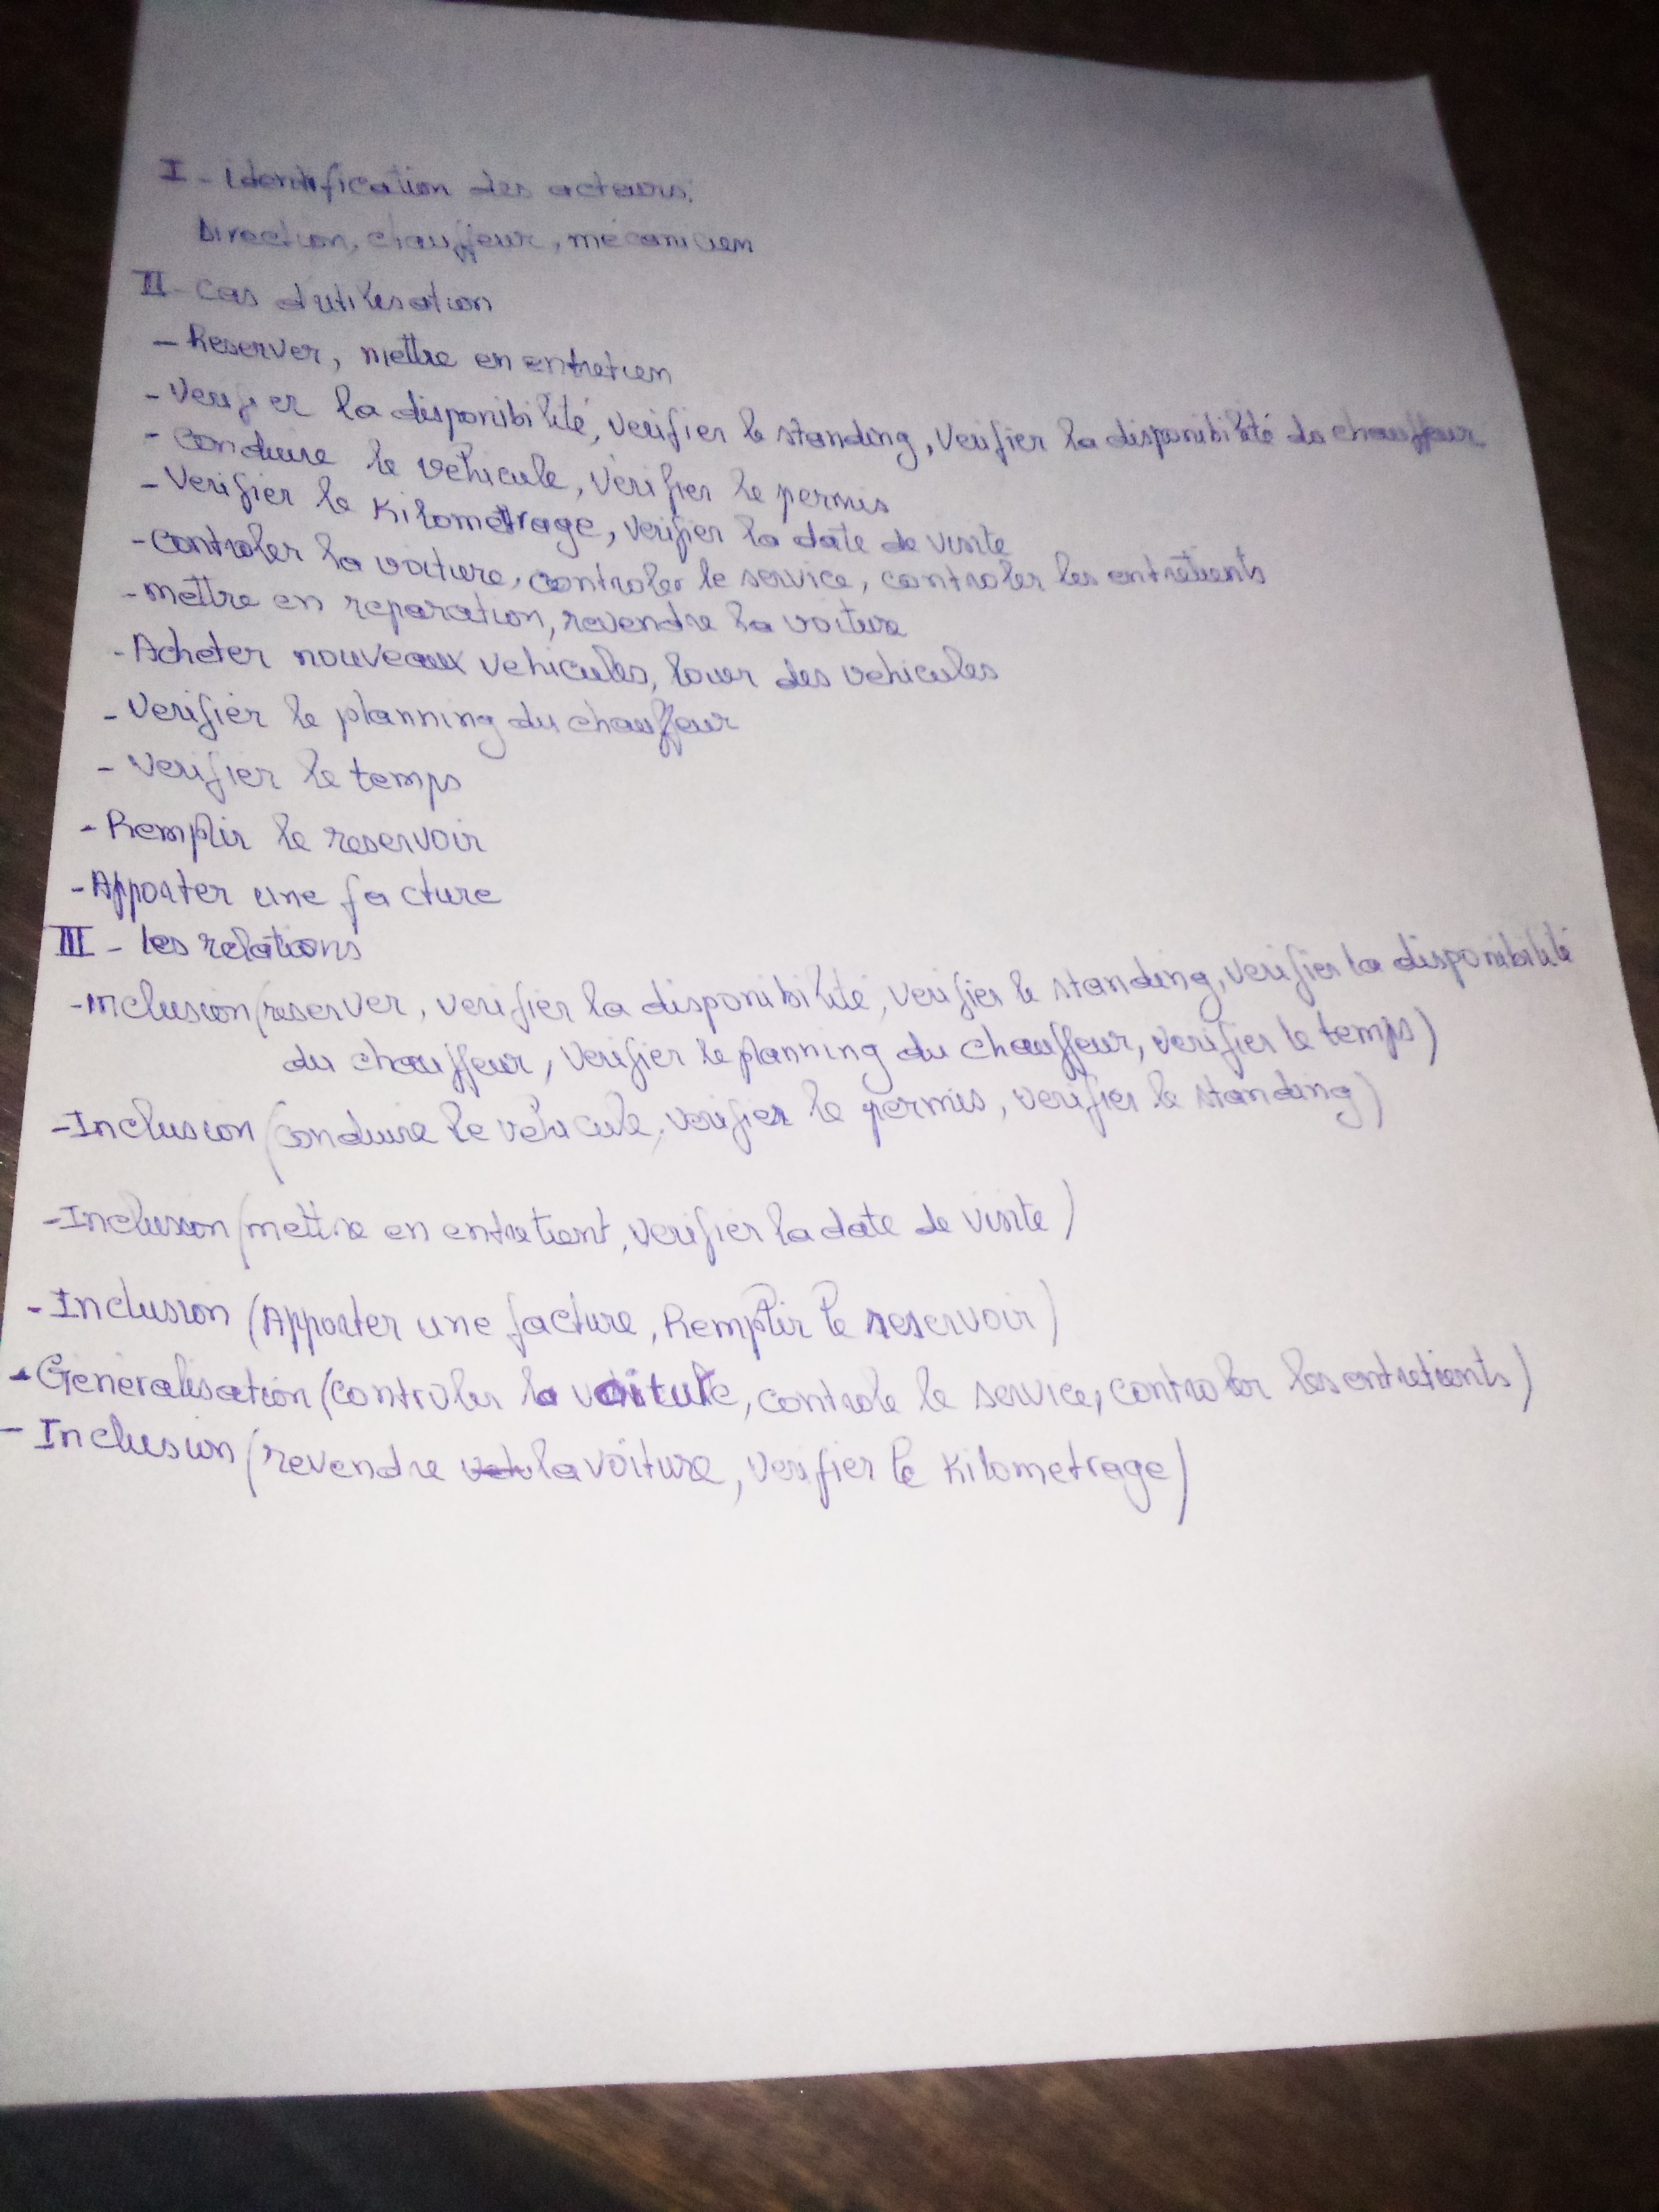 I - Identification des acteurs:
Direction, chauffeur, mécanicien
II - Cas d'utilisation
- Reserver, mettre en entretien
- Verifier la disponibilité, verifier le standing, verifier la disponibilité du chauffeur
- Conduire le véhicule, verifier le permis
- Verifier le Kilometrage, verifier la date de visite
- Controler la voiture, controler le service, controler les entretients
- mettre en reparation, revendre la voiture
- Acheter nouveaux vehicules, louer des vehicules
- Verifier le planning du chauffeur
- Verifier le temps
- Remplir le reservoir
- Apporter une facture
III - les relations
- Inclusion (reserver, verifier la disponibilité, verifier le standing, verifier la disponibilité
du chauffeur, verifier le planning du chauffeur, verifier le temps)
- Inclusion (conduire le véhicule, verifier le permis, verifier le standing)
- Inclusion (mettre en entretient, verifier la date de visite)
- Inclusion (Apporter une facture, Remplir le reservoir)
- Géneralisation (controler la voiture, controle le service, controler les entretients)
- Inclusion (revendre la voiture, verifier le Kilometrage)